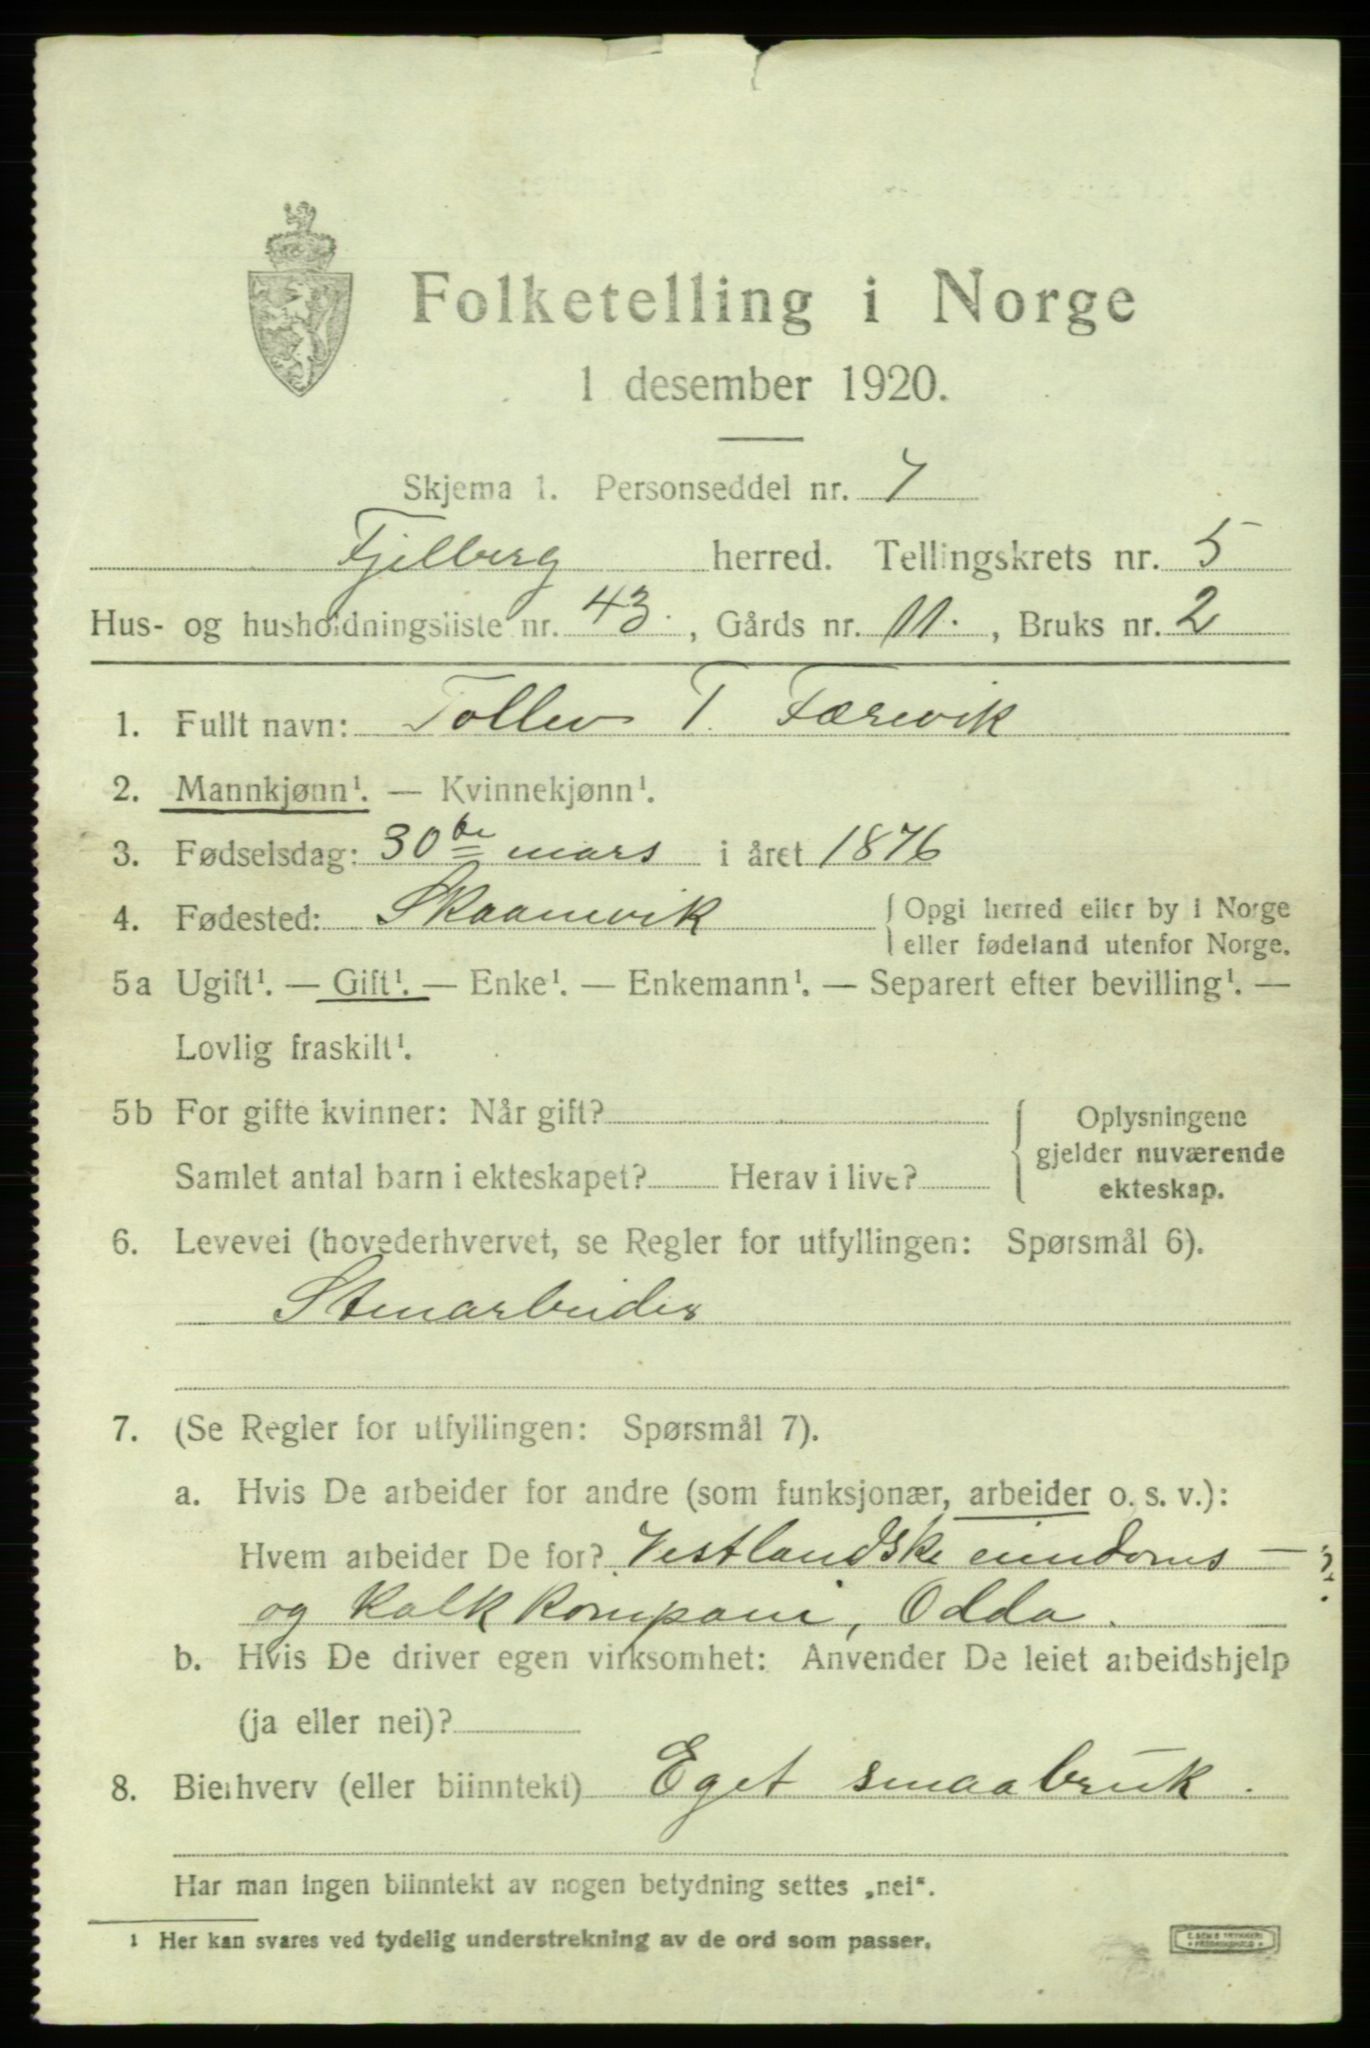 Folketelling i Norge
1 desember 1920.
Skjema 1. Personseddel nr. 7
Fjelberg herred. Tellingskrets nr. 5
Hus- og husholdningsliste nr. 43. , Gårds nr. 11. , Bruks nr. 2
1. Fullt navn: Tollev T. Færevik
2. Mannkjønn¹. — Kvinnekjønn¹.
3. Fødselsdag: 30te mars i året 1876
4. Fødested: Skaanevik { Opgi herred eller by i Norge
eller fødeland utenfor Norge.
5a Ugift¹. — Gift¹. — Enke¹. — Enkemann¹. — Separert efter bevilling¹. —
Lovlig fraskilt¹.
5b For gifte kvinner: Når gift?
Samlet antal barn i ekteskapet? Herav i live?
Oplysningene
gjelder nuværende
ekteskap.
6. Levevei (hovederhvervet, se Regler for utfyllingen: Spørsmål 6).
Stenarbeider
7. (Se Regler for utfyllingen: Spørsmål 7).
a. Hvis De arbeider for andre (som funksjonær, arbeider o. s. v.):
Hvem arbeider De for? Vestlandske eiendoms —
og Kalkkompani, Odda.
b. Hvis De driver egen virksomhet: Anvender De leiet arbeidshjelp
(ja eller nei)?
8. Bierhverv (eller biinntekt) Eget smaabruk.
Har man ingen biinntekt av nogen betydning settes „nei“.
1 Her kan svares ved tydelig understrekning av de ord som passer.